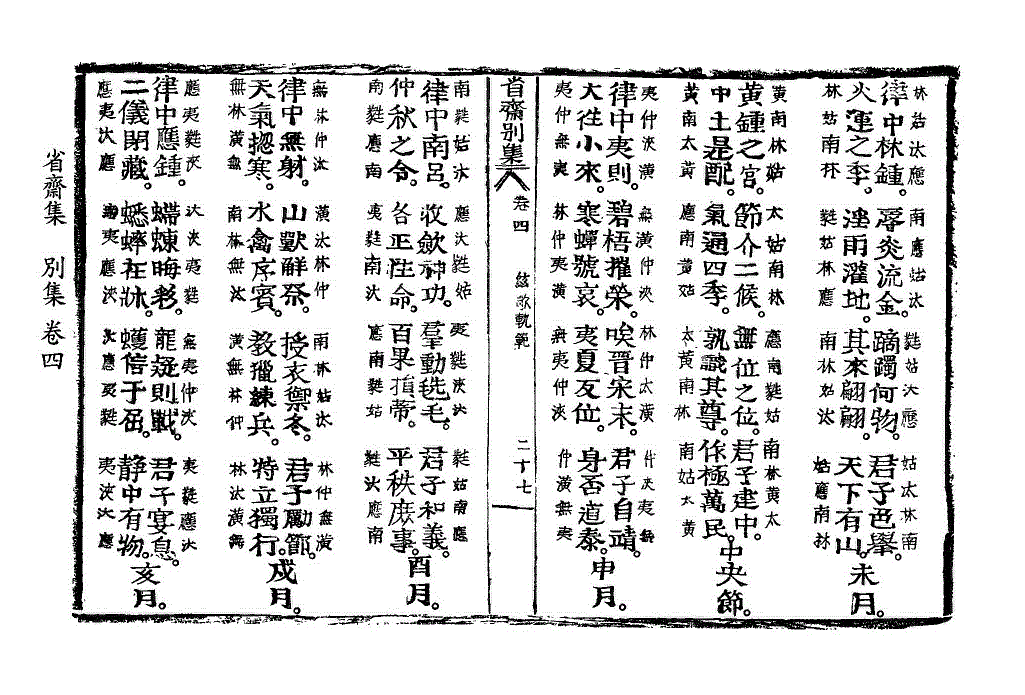 林姑汰應 南應姑汰 蕤姑汰應 姑太林南
律中林鍾。辱炎流金。蹢躅何物。君子色舉。
火運之季。淫雨灌地。其來翩翩。天下有山。未月。
林姑南林 蕤姑林應 南林姑汰 姑應南林
黃南林姑 太姑南林 應南蕤姑 南林黃太
黃鍾之宮。節介二候。無位之位。君子建中。
中土是配。氣通四季。孰識其尊。作極萬民。中央節。
黃南太黃 應南黃姑 太黃南林 南姑太黃
夷仲浹潢 無潢仲浹 林仲太潢 仲浹夷無
律中夷則。碧梧摧榮。唉晋宋末。君子自靖。
大往小來。寒蟬號哀。夷夏反位。身否道泰。申月。
夷仲無夷 林仲無夷 無夷仲浹 仲潢無夷
省齋別集 卷四 歌軌範 二十七
南蕤姑汰 應汰蕤姑 夷蕤浹汰 蕤姑南應
律中南呂。收斂神功。羣動毨毛。君子和義。
仲秋之令。各正性命。百果頂蒂。平秩庶事。酉月。
南蕤應南 夷蕤南汰 應南蕤姑 蕤汰應南
無林仲汰 潢汰林仲 南林姑汰 林仲無潢
律中無射。山獸鮮祭。授衣禦冬。君子勵節。
天氣揔寒。水禽序賓。教獵練兵。特立獨行。戌月。
無林潢無 南林無汰 潢無林仲 林汰潢無
應夷蕤浹 汰浹夷蕤 無夷仲浹 夷蕤應汰
律中應鍾。螮蝀晦彩。龍疑則戰。君子宴息。
二儀閉藏。蟋蟀在牀。蠖信于屈。静中有物。亥月。
應夷汰應 夷應浹 汰應夷蕤 夷浹汰應
省齋集 別集 卷四